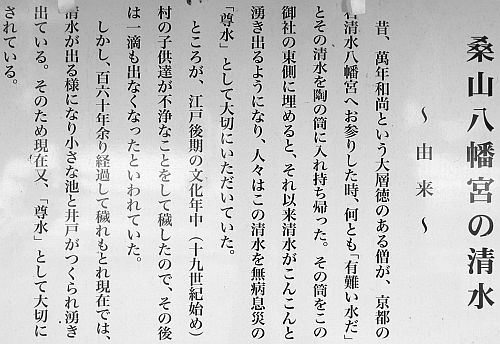 桑山八幡宮の清水
～由来～
昔、萬年和尚という大層徳のある僧が、京都の
清水八幡宮へお参りした時、何とも「有難い水だ」
とその清水を陶の筒に入れ持ち帰った。その筒をこの
御社の東側に埋めると、それ以来清水がこんこんと
湧き出るようになり、人々はこの清水を無病息災の
「尊水」として大切にいただいていた。
ところが、江戸後期の文化年中(十九世紀始め)
村の子供達が不浄なことをして穢したので、その後
は一滴も出なくなったといわれていた。
しかし、百六十年余り経過して穢れもとれ現在では、
清水が出る様になり小さな池と井戸がつくられ湧き
出ている。そのため現在又、「尊水」として大切に
されている。